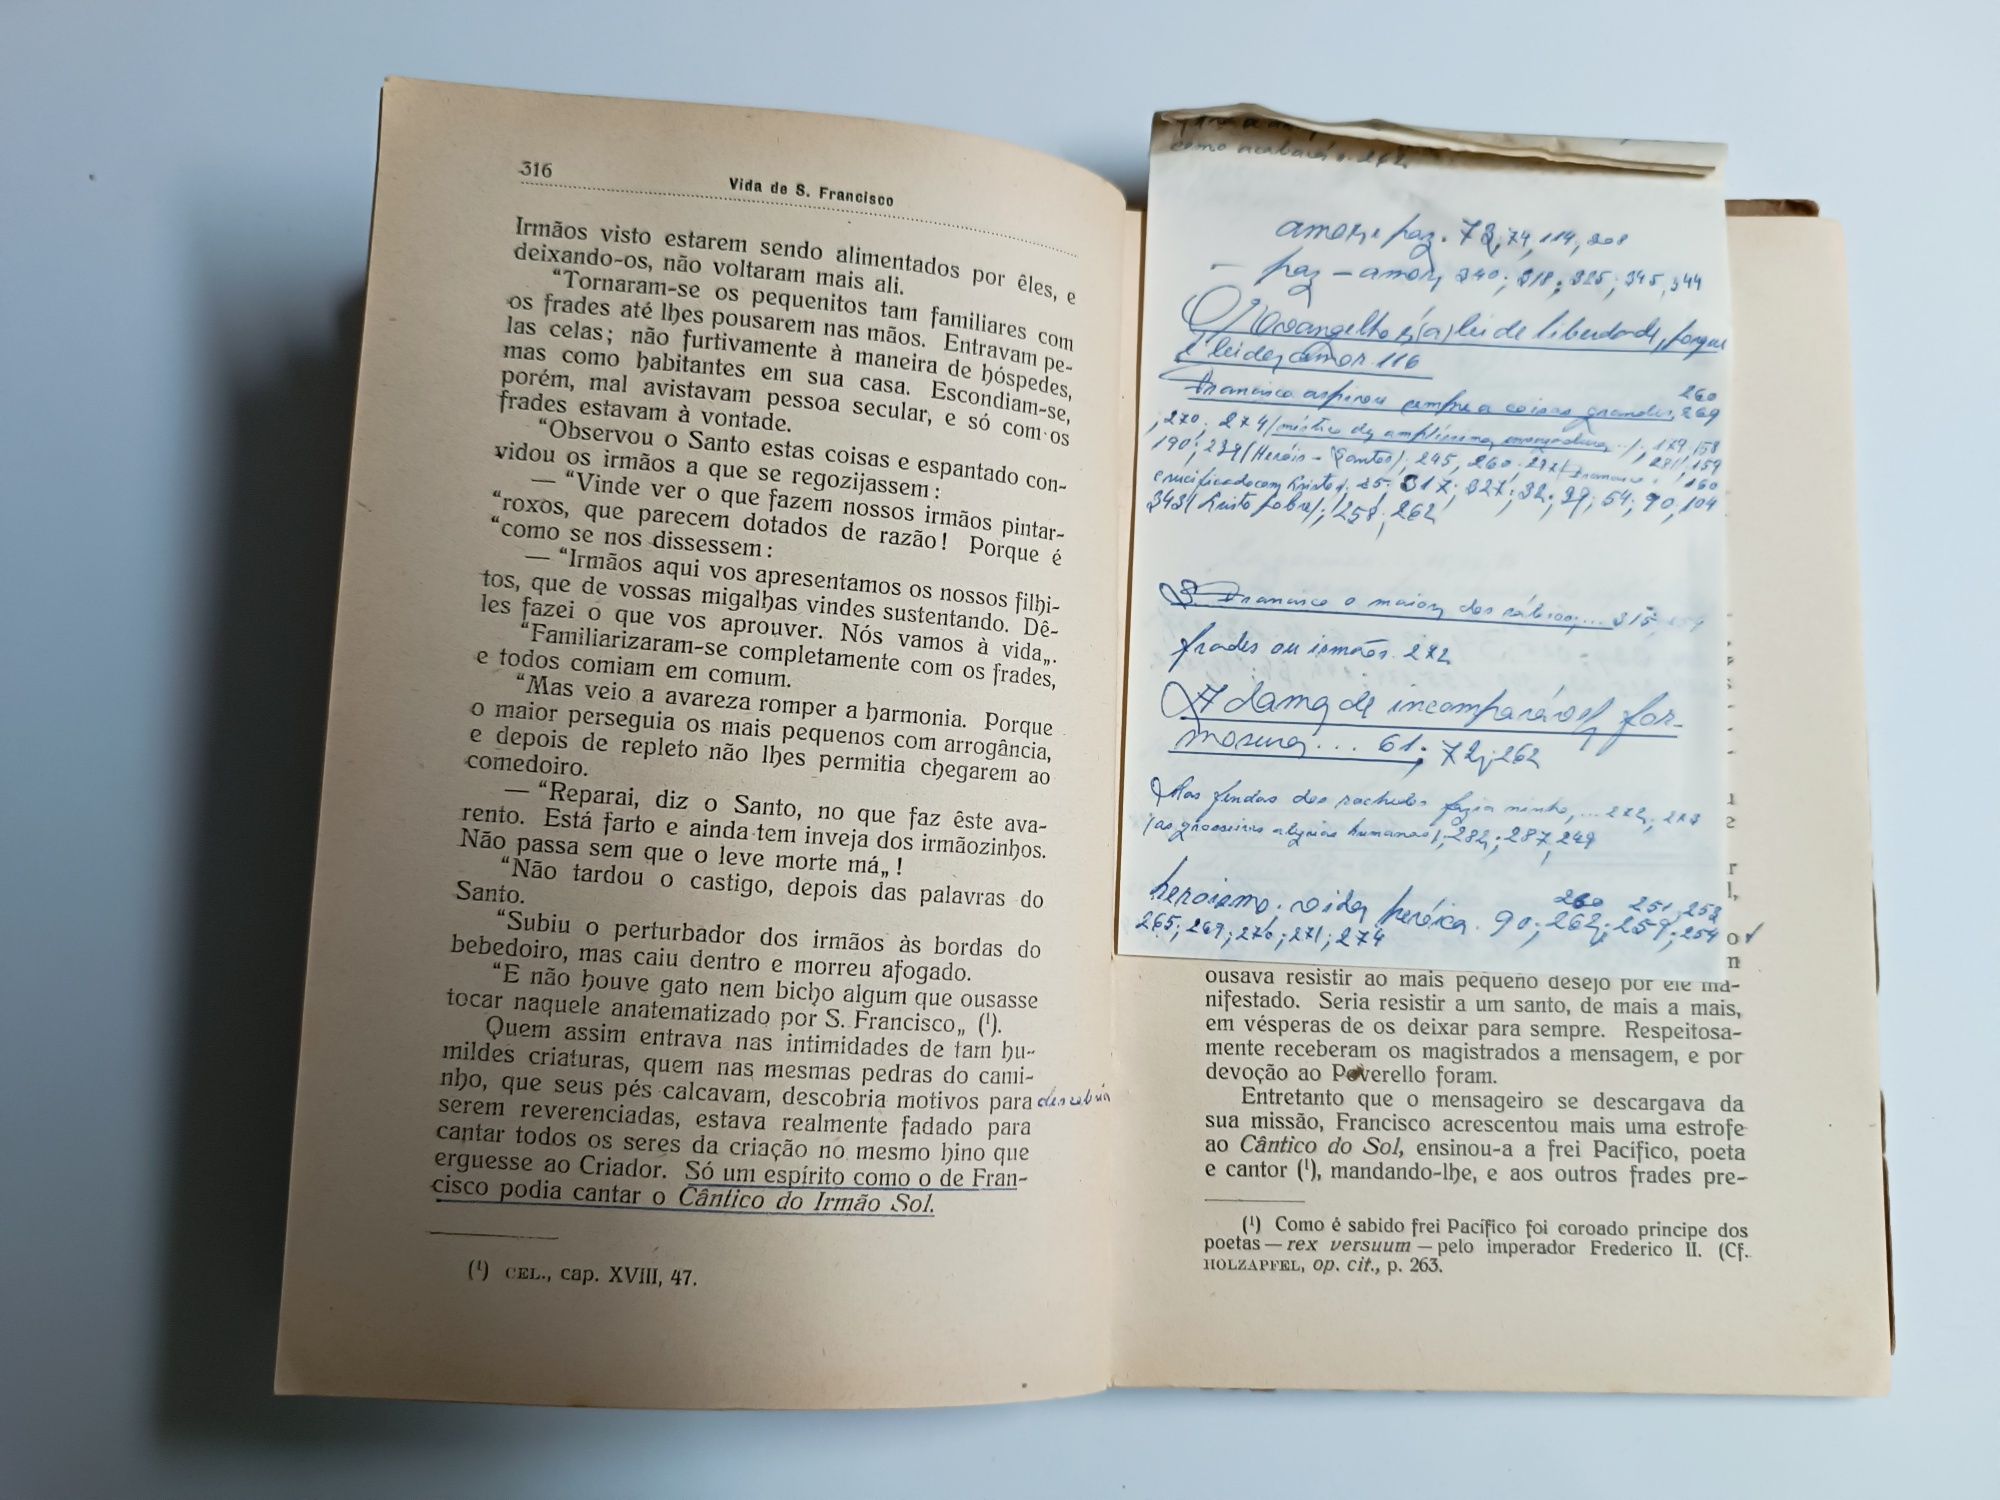 316
Vida de S. Francisco
Irmãos visto estarem sendo alimentados por êles, e
deixando-os, não voltaram mais ali.
“Tornaram-se os pequenitos tam familiares com
os frades até lhes pousarem nas mãos. Entravam pe-
las celas; não furtivamente à maneira de hóspedes,
mas como habitantes em sua casa. Escondiam-se,
porém, mal avistavam pessoa secular, e só com os
frades estavam à vontade.
“Observou o Santo estas coisas e espantado con-
vidou os irmãos a que se regozijassem:
— “Vinde ver o que fazem nossos irmãos pintar-
“roxos, que parecem dotados de razão! Porque é
“como se nos dissessem:
— “Irmãos aqui vos apresentamos os nossos filhi-
tos, que de vossas migalhas vindes sustentando. Dê-
les fazei o que vos aprouver. Nós vamos à vida„.
“Familiarizaram-se completamente com os frades,
e todos comiam em comum.
“Mas veio a avareza romper a harmonia. Porque
o maior perseguia os mais pequenos com arrogância,
e depois de repleto não lhes permitia chegarem ao
comedoiro.
— “Reparai, diz o Santo, no que faz êste ava-
rento. Está farto e ainda tem inveja dos irmãozinhos.
Não passa sem que o leve morte má„!
“Não tardou o castigo, depois das palavras do
Santo.
“Subiu o perturbador dos irmãos às bordas do
bebedoiro, mas caiu dentro e morreu afogado.
“E não houve gato nem bicho algum que ousasse
tocar naquele anatematizado por S. Francisco„ (¹).
Quem assim entrava nas intimidades de tam hu-
mildes criaturas, quem nas mesmas pedras do cami-
nho, que seus pés calcavam, descobria motivos para descobria
serem reverenciadas, estava realmente fadado para
cantar todos os seres da criação no mesmo hino que
erguesse ao Criador. Só um espírito como o de Fran-
cisco podia cantar o Cântico do Irmão Sol.
(¹) CEL., cap. XVIII, 47.
como acabará
amor e paz. 72, 74, 114, 208
— paz — amor, 340; 318; 325; 345, 344
O Evangelho é (a) lei de liberdade, porque
é lei de amor. 116
Francisco aspirou sempre a coisas grandes, 269
260
, 270; 274 (místico de amplíssima 179, 158
190; 239 (Heróis - Santos); 245, 260; 281, 159
crucificado com Cristo). 25; 317; 327; 32; 39; 54; 90, 104
343 (Cristo pobre); 258; 262
S. Francisco o maior dos sábios,... 315;
frades ou irmãos. 272
A dama de incomparável for-
mosura... 61; 72; 262
Nas fendas dos rochedos fazia ninho,... 272;
(as grosseiras alegrias humanas), 282; 287, 249
heroísmo. vida heróica. 90; 262; 259; 254
260 251, 252
265; 269; 270; 271; 274
ousava resistir ao mais pequeno desejo por ele ma-
nifestado. Seria resistir a um santo, de mais a mais,
em vésperas de os deixar para sempre. Respeitosa-
mente receberam os magistrados a mensagem, e por
devoção ao Poverello foram.
Entretanto que o mensageiro se descargava da
sua missão, Francisco acrescentou mais uma estrofe
ao Cântico do Sol, ensinou-a a frei Pacífico, poeta
e cantor (¹), mandando-lhe, e aos outros frades pre-
(¹) Como é sabido frei Pacífico foi coroado principe dos
poetas — rex versuum — pelo imperador Frederico II. (Cf.
HOLZAPFEL, op. cit., p. 263.